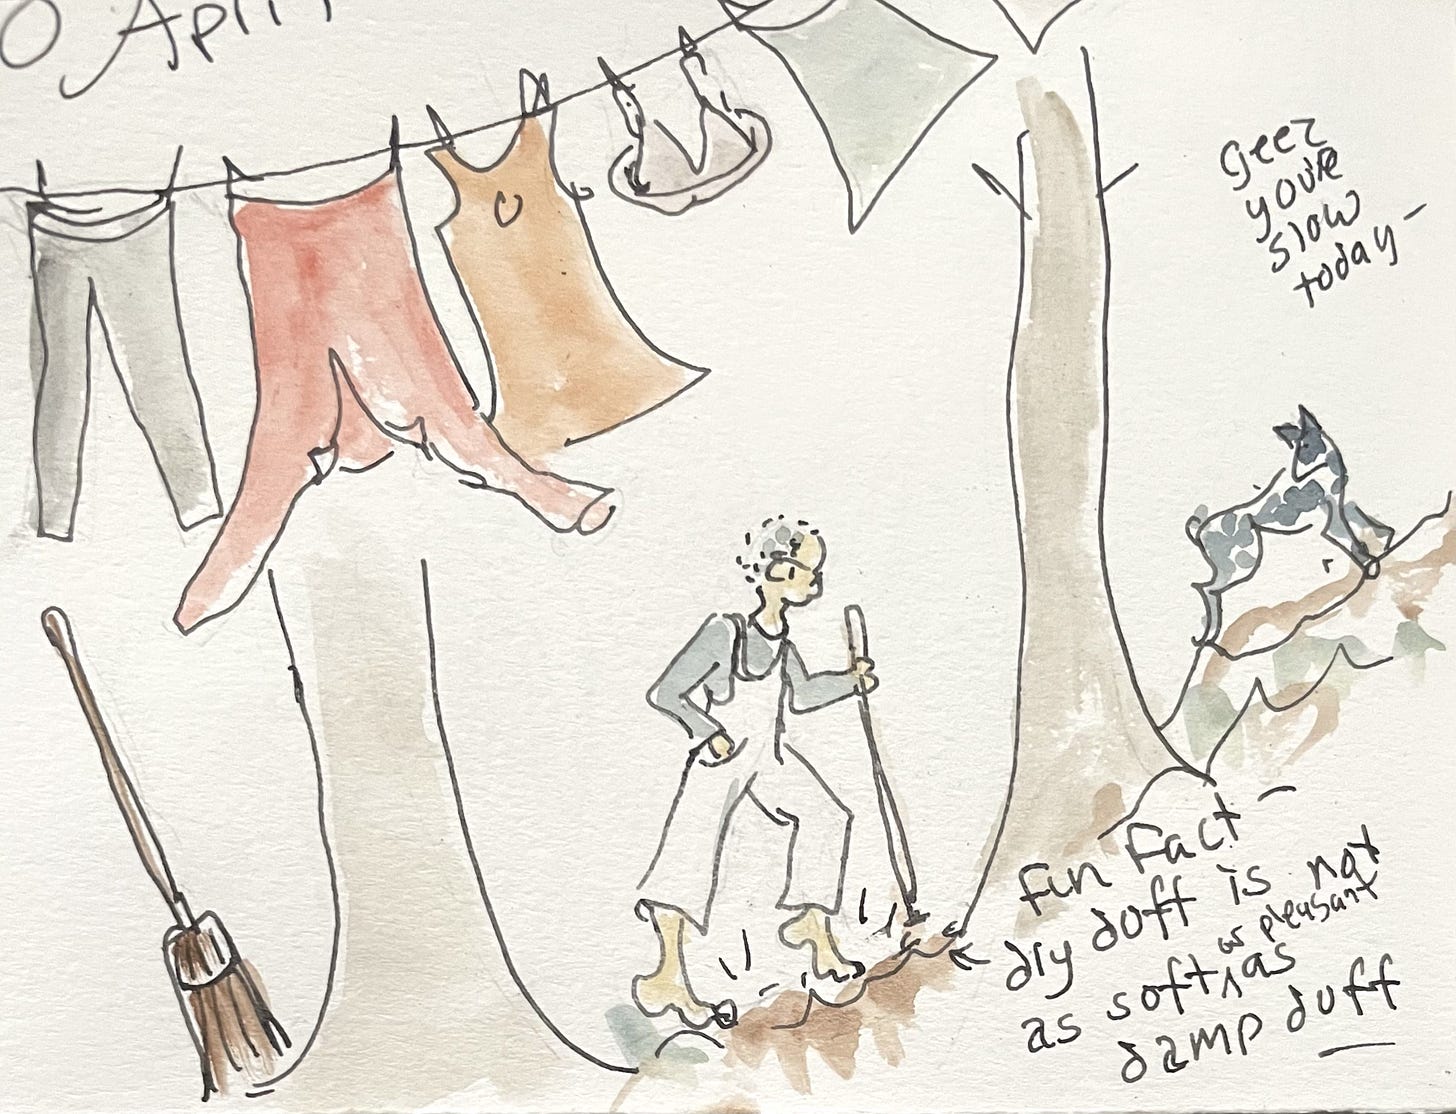 0 April
geez
you're
slow
today-
fun fact -
dry duff is not
as soft ^ or pleasant as
damp duff